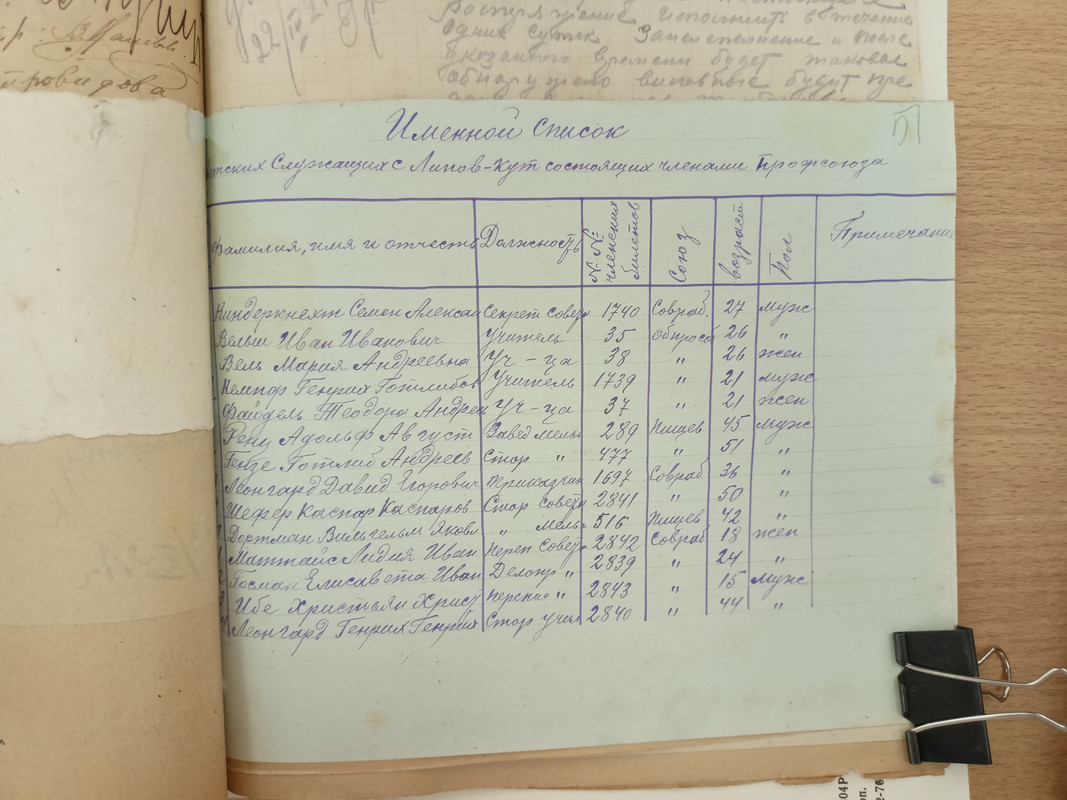 22/IV 2
Распоряжение исполнить в течение
одних суток За неисполнение и после
указанного времени будет таковое
обнаружено виновные будут пре
ровидова
Именной Список
тских Служащих с Липов-Кут состоящих членами Профсоюза
Фамилия, имя и отчеств Должность №№ членских билетов Союз возраст Пол Примечание
Киндеркнехт Семен Алексан Секрет совета 1740 Совраб. 27 Муж
Вельш Иван Иванович Учитель 35 обпросв 26 "
Вель Мария Андреевна Уч-ца 38 " 26 жен
Кемпф Генрих Готлибов Учитель 1739 " 21 муж
Файдель Теодора Андреев Уч-ца 37 " 21 жен
Ренц Адольф Август Завед мель 289 Пищев 45 Муж
Гензе Готлиб Андреев Стор " 477 " 51 "
Леонгард Давид Егорович Приказчик 1697 Совраб 36 "
Шефер Каспар Каспаров Стор совета 2841 " 50 "
Дортман Вильгельм Яковл " мель 516 Пищев 42 "
Маттайс Лидия Иван Переп совета 2842 Совраб 18 жен
Госман Елисавета Иван Делопр " 2839 " 24 "
Ибе Христьян Христ " 2843 " 15 Муж
Леонгард Генрих Генрих Стор учил 2840 " 44 "
04Р
оп.
2-76